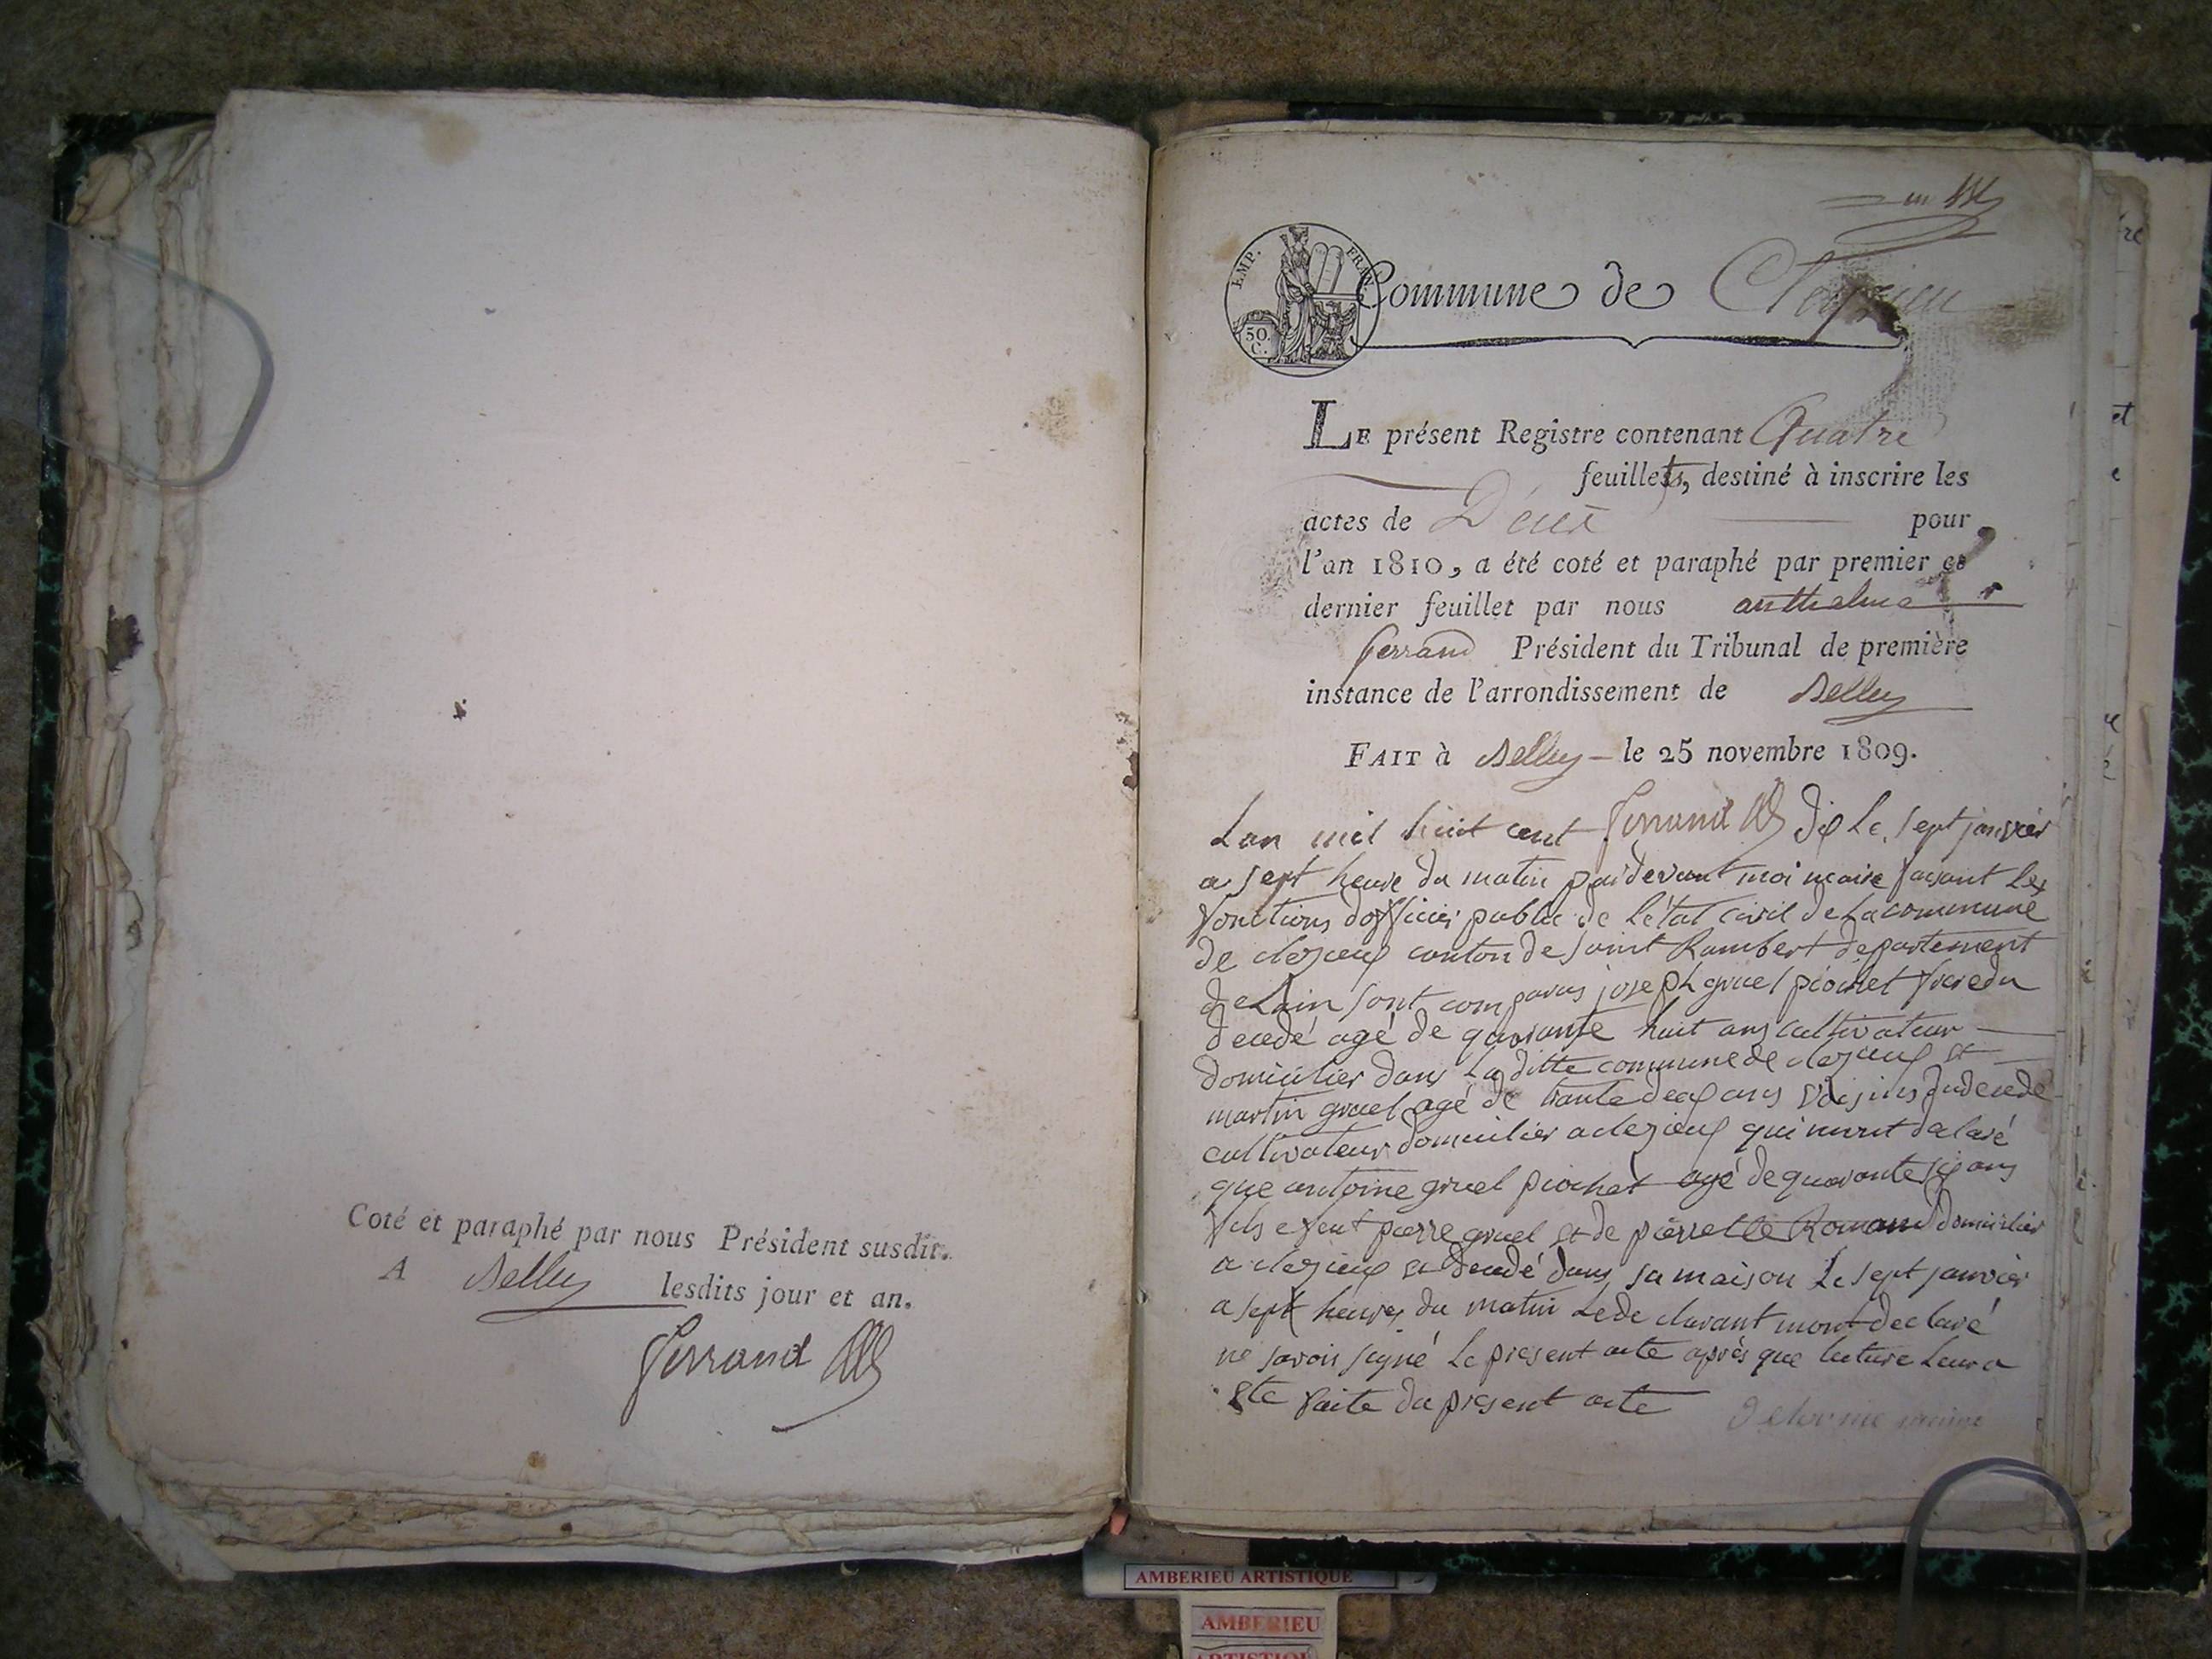 Coté et paraphé par nous Président susdit.
A Belley lesdits jour et an.
Ferrand
un
EMP. FRAN.
50
C.
Commune de Cleyzieu
LE présent Registre contenant Quatre
feuillets, destiné à inscrire les
actes de Décès pour
l'an 1810, a été coté et paraphé par premier et
dernier feuillet par nous anthelme
ferrand Président du Tribunal de première
instance de l'arrondissement de Belley
FAIT à Belley le 25 novembre 1809.
Lan mil huit cent Ferrand dix Le sept janvier
a sept heure du matin pardevant moi maire faisant Les
fonctions dofficier public de Letat civil de La commune
de clezieux canton de saint Rambert departement
de Lain sont comparus joseph gruel piochet frere du
decedé agé de quarante huit ans cultivateur
domicilier dans La ditte commune de clezieux et
martin gruel agé de trante deux ans voisins du decede
cultivateur domicilier a clezieux qui mont declaré
que antoine gruel piochet agé de quarante six ans
fils e feut pierre gruel et de pierrette Romand domicilier
a clezieux et decedé dans sa maison Le sept janvier
a sept heures du matin Le de clarant mont declaré
ne savoir signé Le present acte après que lecture Leur a
ete faite du present acte
Delorme maire
AMBERIEU ARTISTIQUE
AMBERIEU
ARTISTIQUE